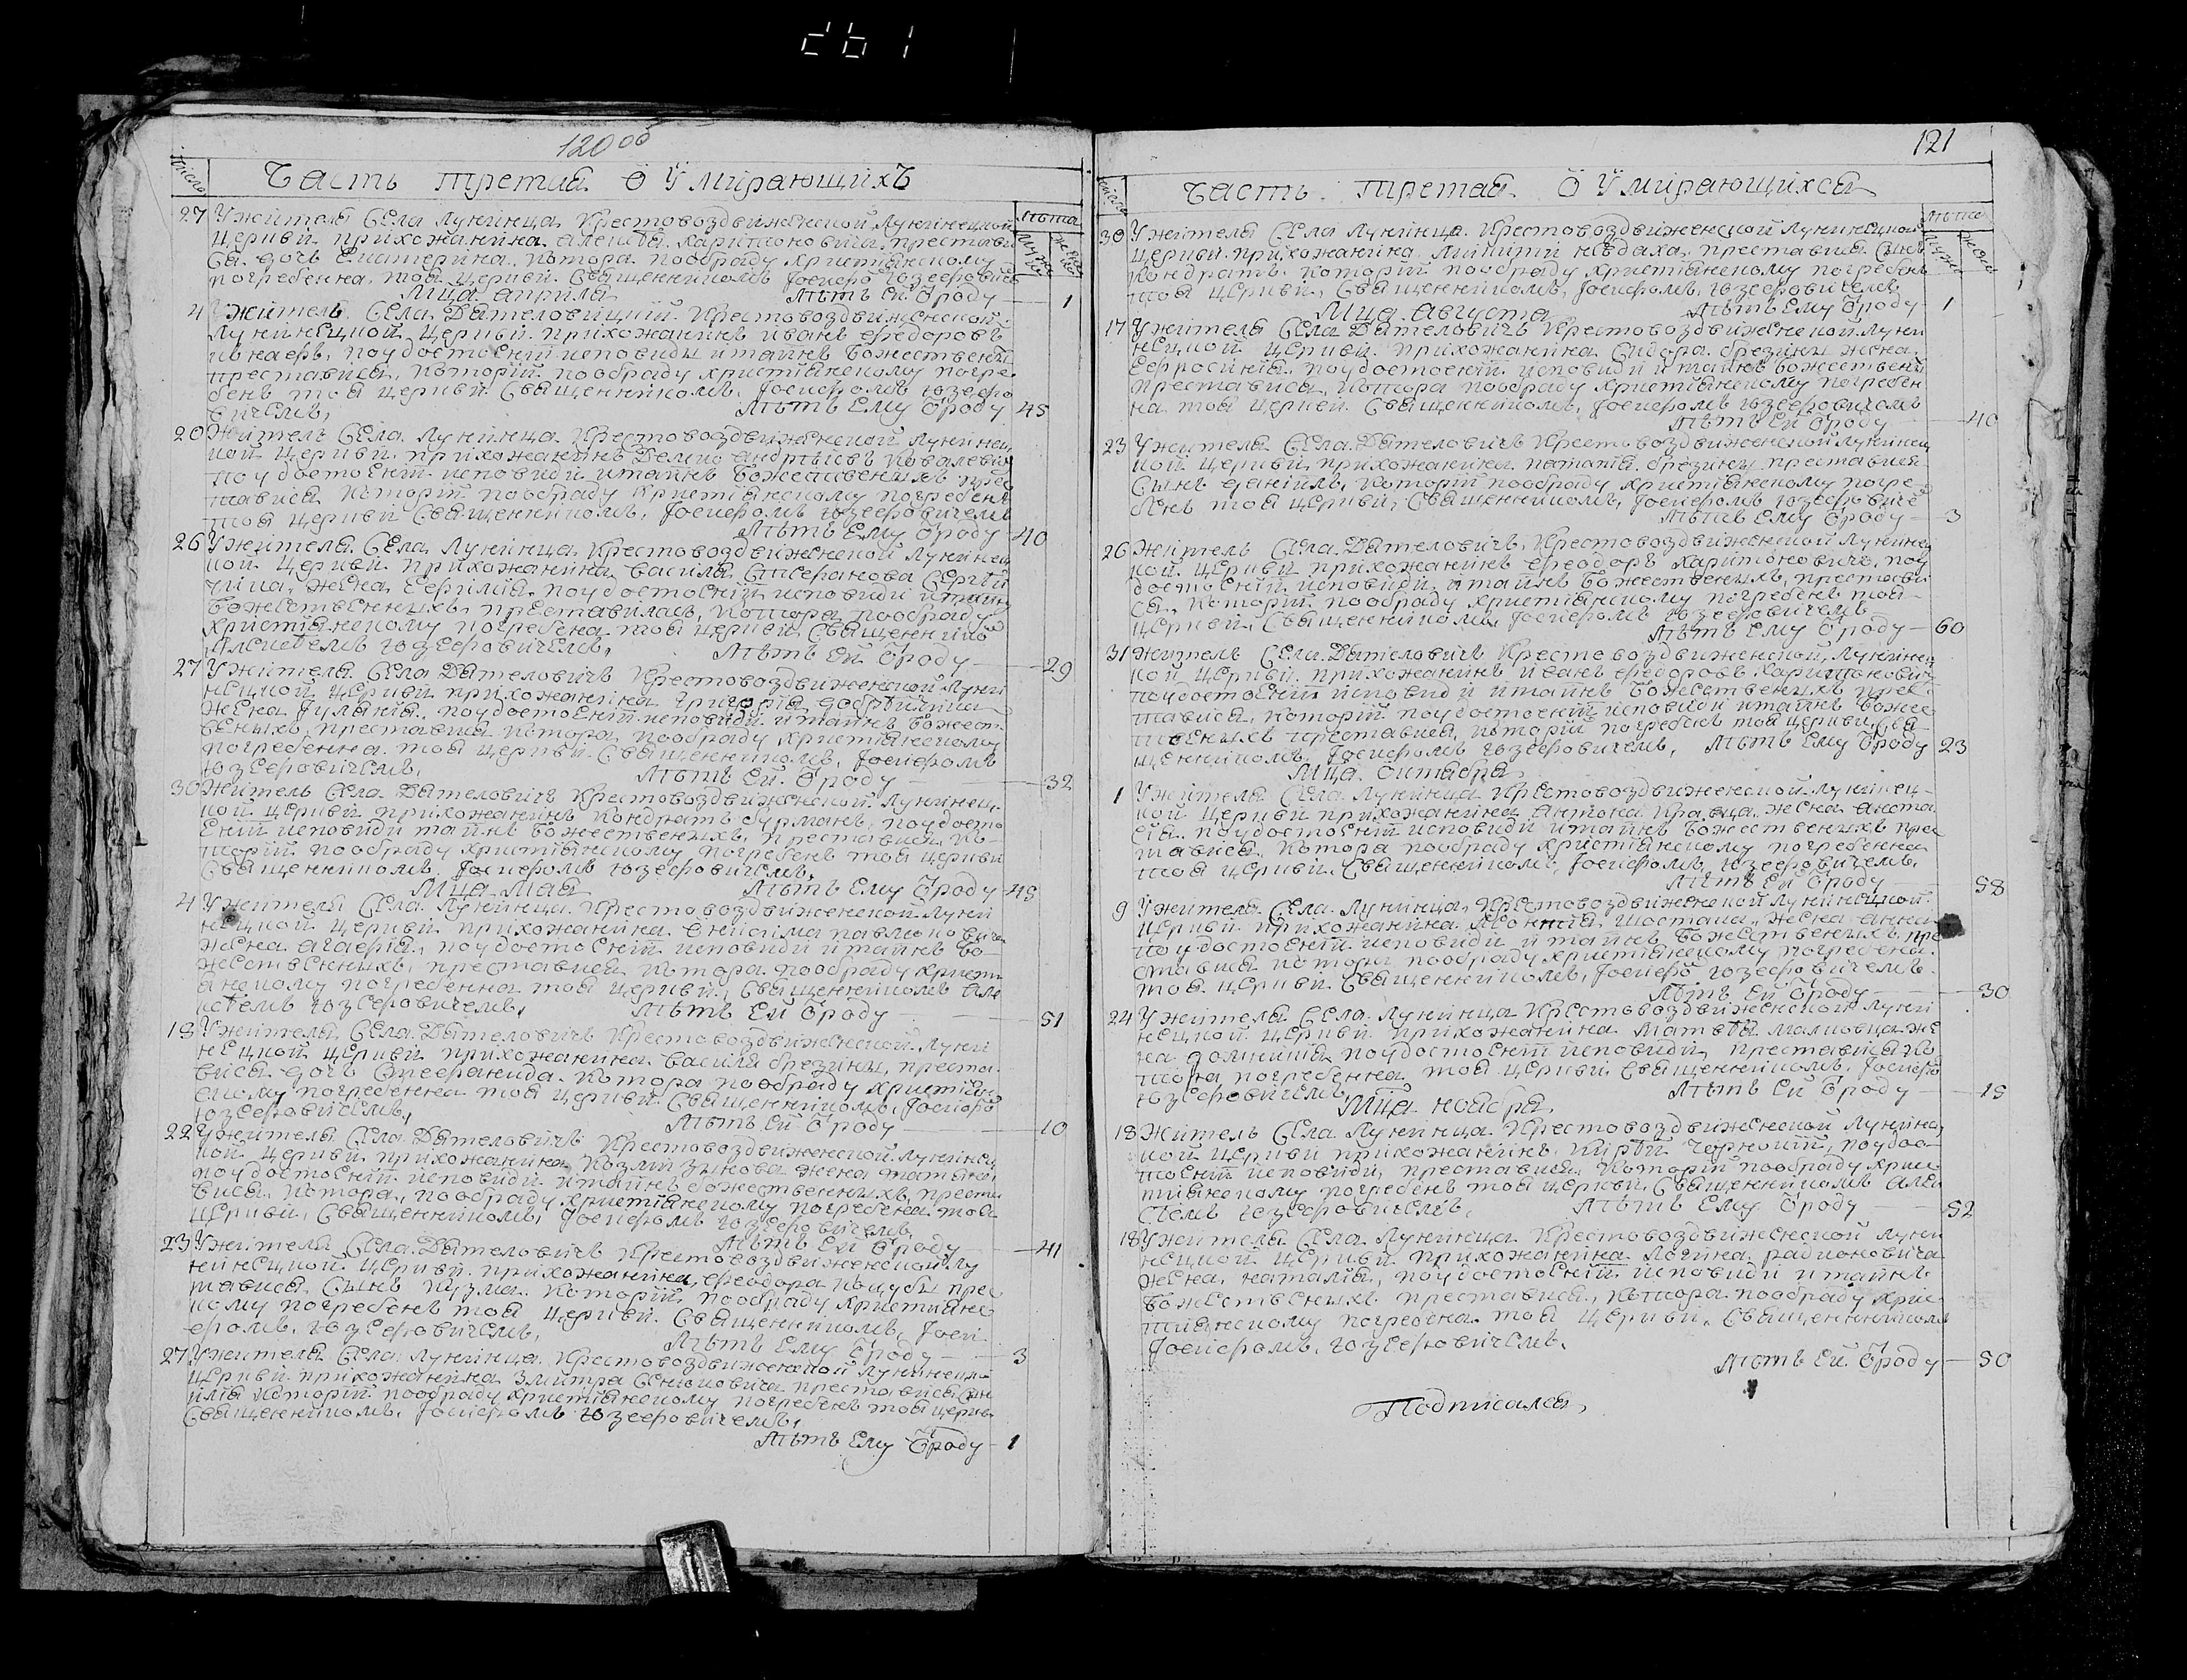 120 об
число
Часть третая О Умирающихъ
лѣта
муж
жен
27 У жителя Села Лунинца Крестовоздвиженской Лунинецкой
церкви прихожанина Алексѣя Харитоновича, престави
ся дочь Екатерина, котора пообряду христіянскому
погребенна тоя церкви Священникомъ Іосифо Юзефовиче
Мца Априля Лѣтъ Ей Ѿроду 1
4 Житель Села Дятеловицкій Крестовоздвиженской
Лунинецкой церкви прихожанинъ Иванъ Федоровъ
поудостоеніи исповиди и тайнъ Божественныхъ
преставися, которій пообряду христіянскому погре
бенъ тоя церкви Священникомъ Іосифомъ Юзефо
вичемъ, Лѣтъ Ему Ѿроду 45
20 Житель Села Лунинца Крестовоздвиженской Лунинец
кой церкви прихожанинъ Демко Андрѣевъ Ковалевич
поудостоеніи исповиди и тайнъ Божественныхъ прес
тависа которій пообряду христіянскому погребенъ
тоя церкви Священникомъ, Іосифомъ Юзефовичемъ
Лѣтъ Ему Ѿроду 40
26 У жителя Села Лунинца Крестовоздвиженской Лунинец
кой церкви прихожанина Василя Стефанова Серги
чика, жена Ефимія, поудостоеніи исповиди и тайнъ
Божественныхъ, преставилась, котора пообряду
христіянскому погребена тоя церкви Священникомъ
Алексѣемъ Юзефовичемъ, Лѣтъ Ей Ѿроду 29
27 У жителя Села Дятеловичъ Крестовоздвиженской Луни
нецкой церкви прихожанина Григорія
жена Іуліанія, поудостоеніи исповиди и тайнъ Божест
веныхъ, преставися котора пообряду христіянскому
погребенна тоя церкви Священникомъ, Іосифомъ
Юзефовичемъ, Лѣтъ Ей Ѿроду 32
30 Житель Села Дятеловичъ Крестовоздвиженской Лунинец
кой церкви прихожанинъ Кондратъ Бурманъ, поудосто
еніи исповиди тайнъ Божественныхъ, преставися ко
торій пообряду христіянскому погребенъ тоя церкви
Священникомъ Іосифомъ Юзефовичемъ,
Мца Мая Лѣтъ Ему Ѿроду 45
4 У жителя Села Лунинца Крестовоздвиженской Луни
нецкой церкви прихожанина Павлюковича
жена Агафія, поудостоеніи исповиди и тайнъ Бо
жественныхъ, преставися котора пообряду христі
янскому погребенна тоя церкви, Священникомъ Але
ксѣемъ Юзефовичемъ, Лѣтъ Ей Ѿроду 51
19 У жителя Села Дятеловичъ Крестовоздвиженской Луни
нецкой церкви прихожанина Василя Брезины, преста
вися дочь котора пообряду христіян
скому погребенна тоя церкви Священникомъ, Іосифо
Юзефовичемъ, Лѣтъ Ей Ѿроду 10
22 У жителя Села Дятеловичъ Крестовоздвиженской Лунинец
кой церкви прихожанина Козмы Зыкова жена
поудостоеніи исповиди и тайнъ Божественныхъ, преста
вися котора, пообряду христіянскому погребена тоя
церкви, Священникомъ, Іосифомъ Юзефовичемъ,
Лѣтъ Ей Ѿроду 41
23 У жителя Села Дятеловичъ Крестовоздвиженской Лу
нинецкой церкви прихожанина, Феодора Коцубы прес
тавися Сынъ Кузма которій пообряду христіянс
кому погребенъ тоя церкви Священникомъ, Іоси
фомъ, Юзефовичемъ, Лѣтъ Ему Ѿроду 3
27 У жителя Села Лунинца Крестовоздвиженской Лунинецкой
церкви прихожанина Змитра Сенюковича преставися Сын
Илія которій пообряду христіянскому погребенъ тоя церкви
Священникомъ, Іосифомъ Юзефовичемъ,
Лѣтъ Ему Ѿроду 1
121
число
Часть третая О Умирающихся
лѣта
муж
жен
30 У жителя Села Лунинца Крестовоздвиженской Лунинецкой
церкви прихожанина Микити Невдаха, преставися Сынъ
Кондратъ которій пообряду христіянскому погребенъ
тоя церкви, Священникомъ, Іосифомъ, Юзефовичемъ
Мца Августа Лѣтъ Ему Ѿроду 1
17 У жителя Села Дятеловичъ Крестовоздвиженской Луни
нецкой церкви прихожанина Сидора Брезины жена
Ефросинія, поудостоеніи исповиди и тайнъ Божествены
преставися, котора пообряду христіянскому погребен
на тоя церкви Священникомъ, Іосифомъ Юзефовичемъ
Лѣтъ Ей Ѿроду 40
23 У жителя Села Дятеловичъ Крестовоздвиженской Лунинец
кой церкви прихожанина Брезины преставися
Сынъ Даніилъ, которій пообряду христіянскому погре
бенъ тоя церкви, Священникомъ, Іосифомъ Юзефовиче
Лѣтъ Ему Ѿроду 3
26 Житель Села Дятеловичъ, Крестовоздвиженской Лунинец
кой церкви прихожанинъ Феодоръ Харитоновичъ, поу
достоеніи исповиди, и тайнъ Божественыхъ, престави
ся, которій пообряду христіянскому погребенъ тоя
церкви Священникомъ, Іосифомъ Юзефовичемъ
Лѣтъ Ему Ѿроду 60
31 Житель Села Дятеловичъ Крестовоздвиженской Лунинец
кой церкви прихожанинъ Иванъ Федоровъ Харитонович
поудостоеніи исповиди и тайнъ Божественныхъ прес
тависа, которій поудостоеніи исповиди и тайнъ Божес
твеныхъ преставися, которій погребенъ тоя церкви, Свя
щенникомъ, Іосифомъ Юзефовичемъ, Лѣтъ Ему Ѿроду 23
Мца Октября
1 У жителя Села Лунинца Крестовоздвиженской Лунинец
кой церкви прихожанина Антона Кравца жена Анста
сія, поудостоеніи исповиди и тайнъ Божественыхъ прес
тависа, котора пообряду христіянскому погребенна
тоя церкви Священникомъ, Іосифомъ Юзефовичемъ,
Лѣтъ Ей Ѿроду 58
9 У жителя Села Лунинца, Крестовоздвиженской Лунинецкой
церкви прихожанина Шостака, жена Анна
поудостоеніи исповиди и тайнъ Божественыхъ пре
ставися котора пообряду христіянскому погребена
тоя церкви Священникомъ, Іосифо Юзефовичемъ
Лѣтъ Ей Ѿроду 30
24 У жителя Села Лунинца Крестовоздвиженской Луни
нецкой церкви прихожанина Матвѣя Малковца же
на Домникія поудостоеніи исповиди, преставися ко
тора погребенна тоя церкви Священникомъ, Іосифо
Юзефовичемъ Лѣтъ Ей Ѿроду 19
Мца Ноября
18 Житель Села Лунинца Крестовоздвиженской Лунинец
кой церкви прихожанинъ, поудос
тоеніи исповиди, преставися, которій пообряду хрис
тіянскому погребенъ тоя церкви, Священникомъ Але
ксѣемъ Юзефовичемъ, Лѣтъ Ему Ѿроду 52
18 У жителя Села Лунинца Крестовоздвиженской Луни
нецкой церкви прихожанина Логина Радионовича
жена Наталія, поудостоеніи исповиди и тайнъ
Божественыхъ преставися, котора пообряду хрис
тіянскому погребена тоя церкви, Священникомъ
Іосифомъ, Юзефовичемъ,
Лѣтъ Ей Ѿроду 50
Подписался,